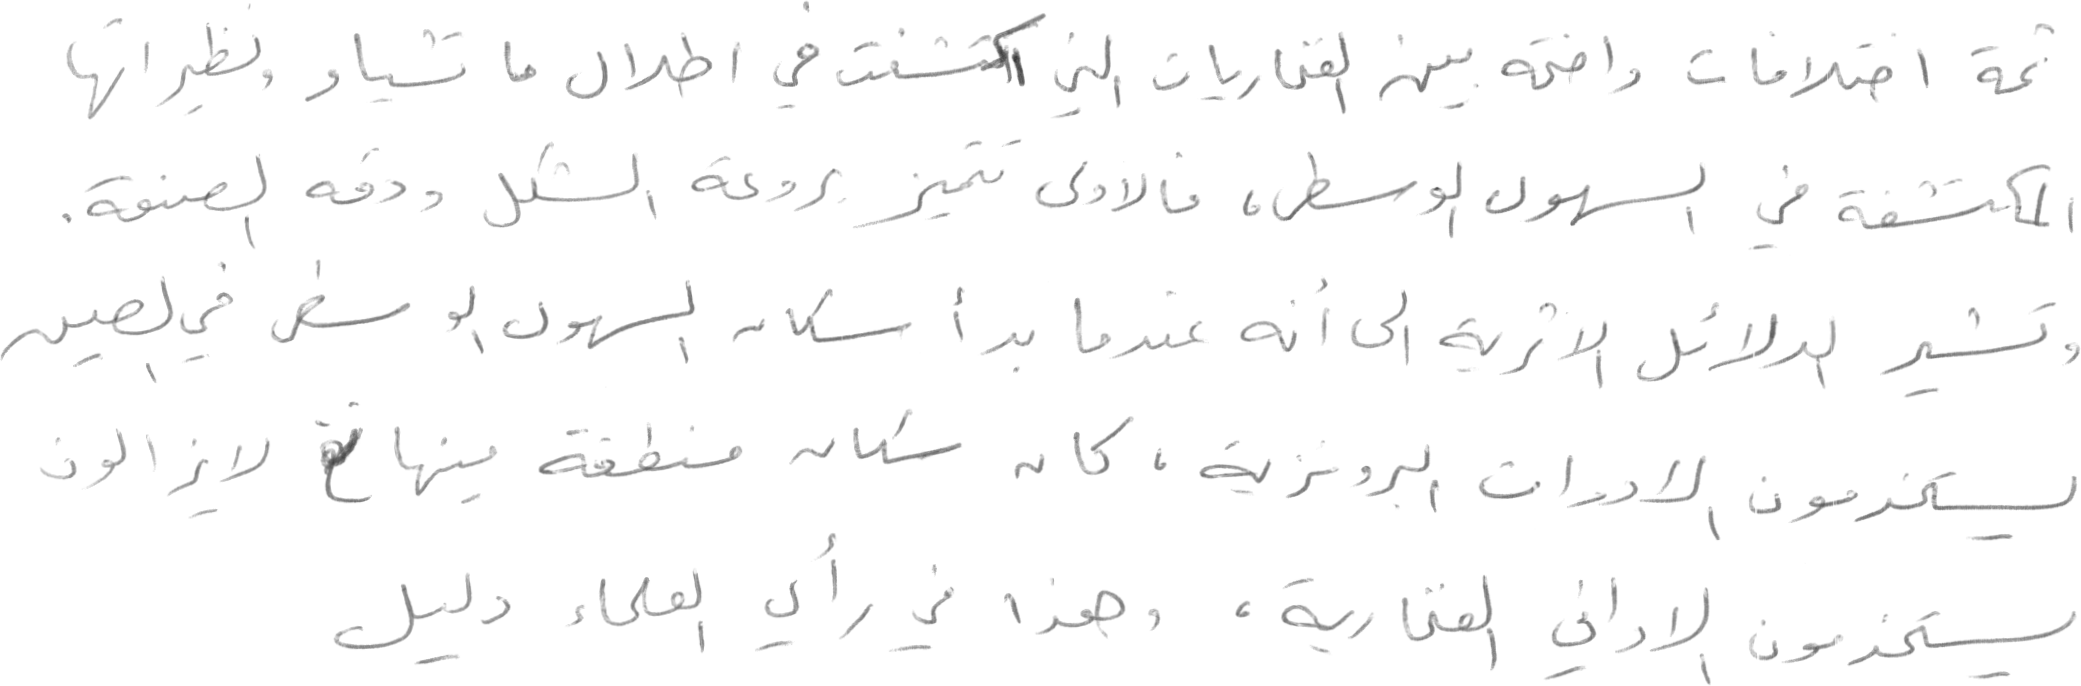 ثمة اختلافات واضحة بين الفخاريات التي اكتشفت في اطلال ماتشياو ونظيراتها
المكتشفة في السهول الوسطى، فالاولى تتميز بروعة الشكل ودقة الصنعة.
وتشير الدلائل الاثرية الى أنه عندما بدأ سكان السهول الوسطى في الصين
يستخدمون الادوات البرونزية، كان سكان منطقة مينهانغ لايزالون
يستخدمون الاواني الفخارية، وهذا في رأي العلماء دليل